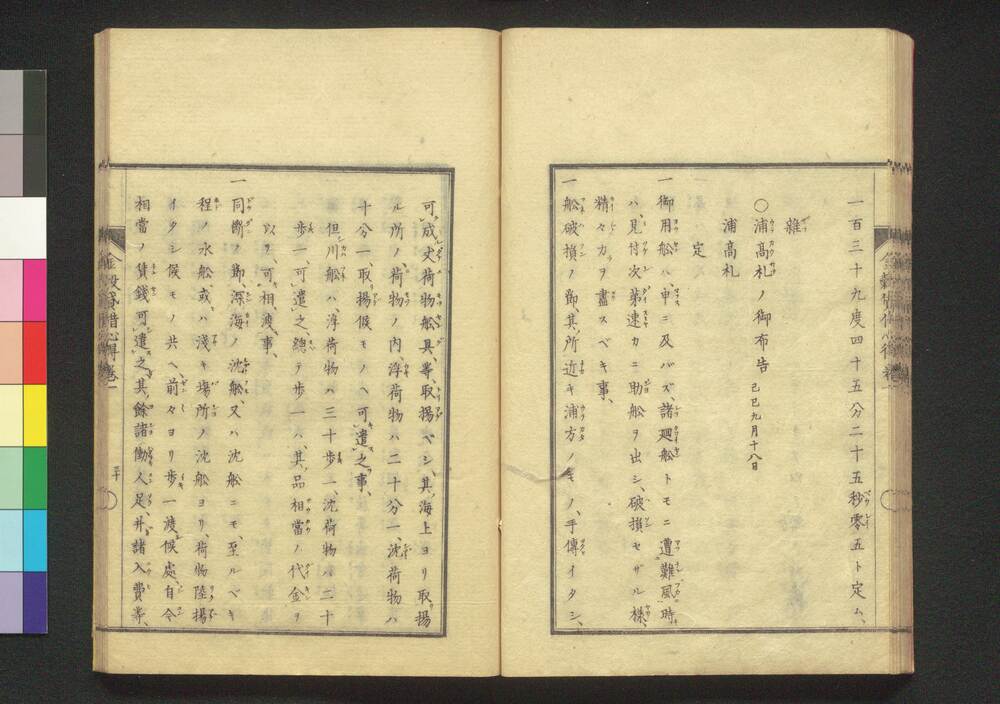 一百三十九度四十五分二十五秒零五ト定ム、
雜
〇浦高札ノ御布告 己巳九月十八日
浦高札
定
一御用船ハ、申ニ及バズ、諸廻船トモニ遭難風時
ハ、見付次第速カニ助船ヲ出シ、破損セザル樣、
精々力ヲ盡スベキ事、
一船破損ノ節、其ノ所近キ浦方ノモノ、手傳イタシ、
可成丈荷物船具等取揚ベシ、其海上ヨリ取揚
ル所ノ荷物ノ内、浮荷物ハ二十分一、沈荷物ハ
十分一、取揚候モノヘ可遣之事、
但川船ハ、浮荷物ハ三十歩一、沈荷物ハ二十
歩一、可遣之、總テ歩一ハ、其品相當ノ代金ヲ
以テ、可相渡、事、
一同斷ノ節、深海ノ沈船、又ハ沈船ニモ、至ルベキ
程ノ水船、或ハ淺キ場所ノ沈船ヨリ、荷物陸揚
イタシ候モノ共ヘ、前々ヨリ歩一渡候處、自今
相當ノ賃錢可遣之、其餘諸働人足幷諸入費等、
心得卷一
三十